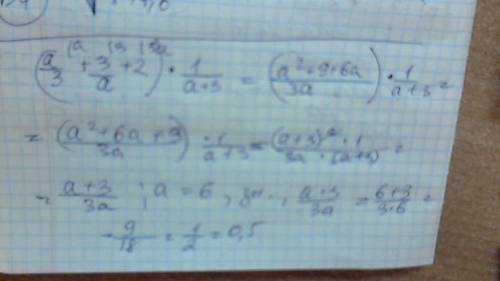 (a/3 + 3/a + 2) · 1/(a+3) = (a²+9+6a)/3a · 1/(a+3) =
= (a²+6a+9)/3a · 1/(a+3) = (a+3)² · 1/3a · (a+3) =
= (a+3)/3a ; a = 6, (a+3)/3a = (6+3)/3·6 =
= 9/18 = 1/2 = 0,5